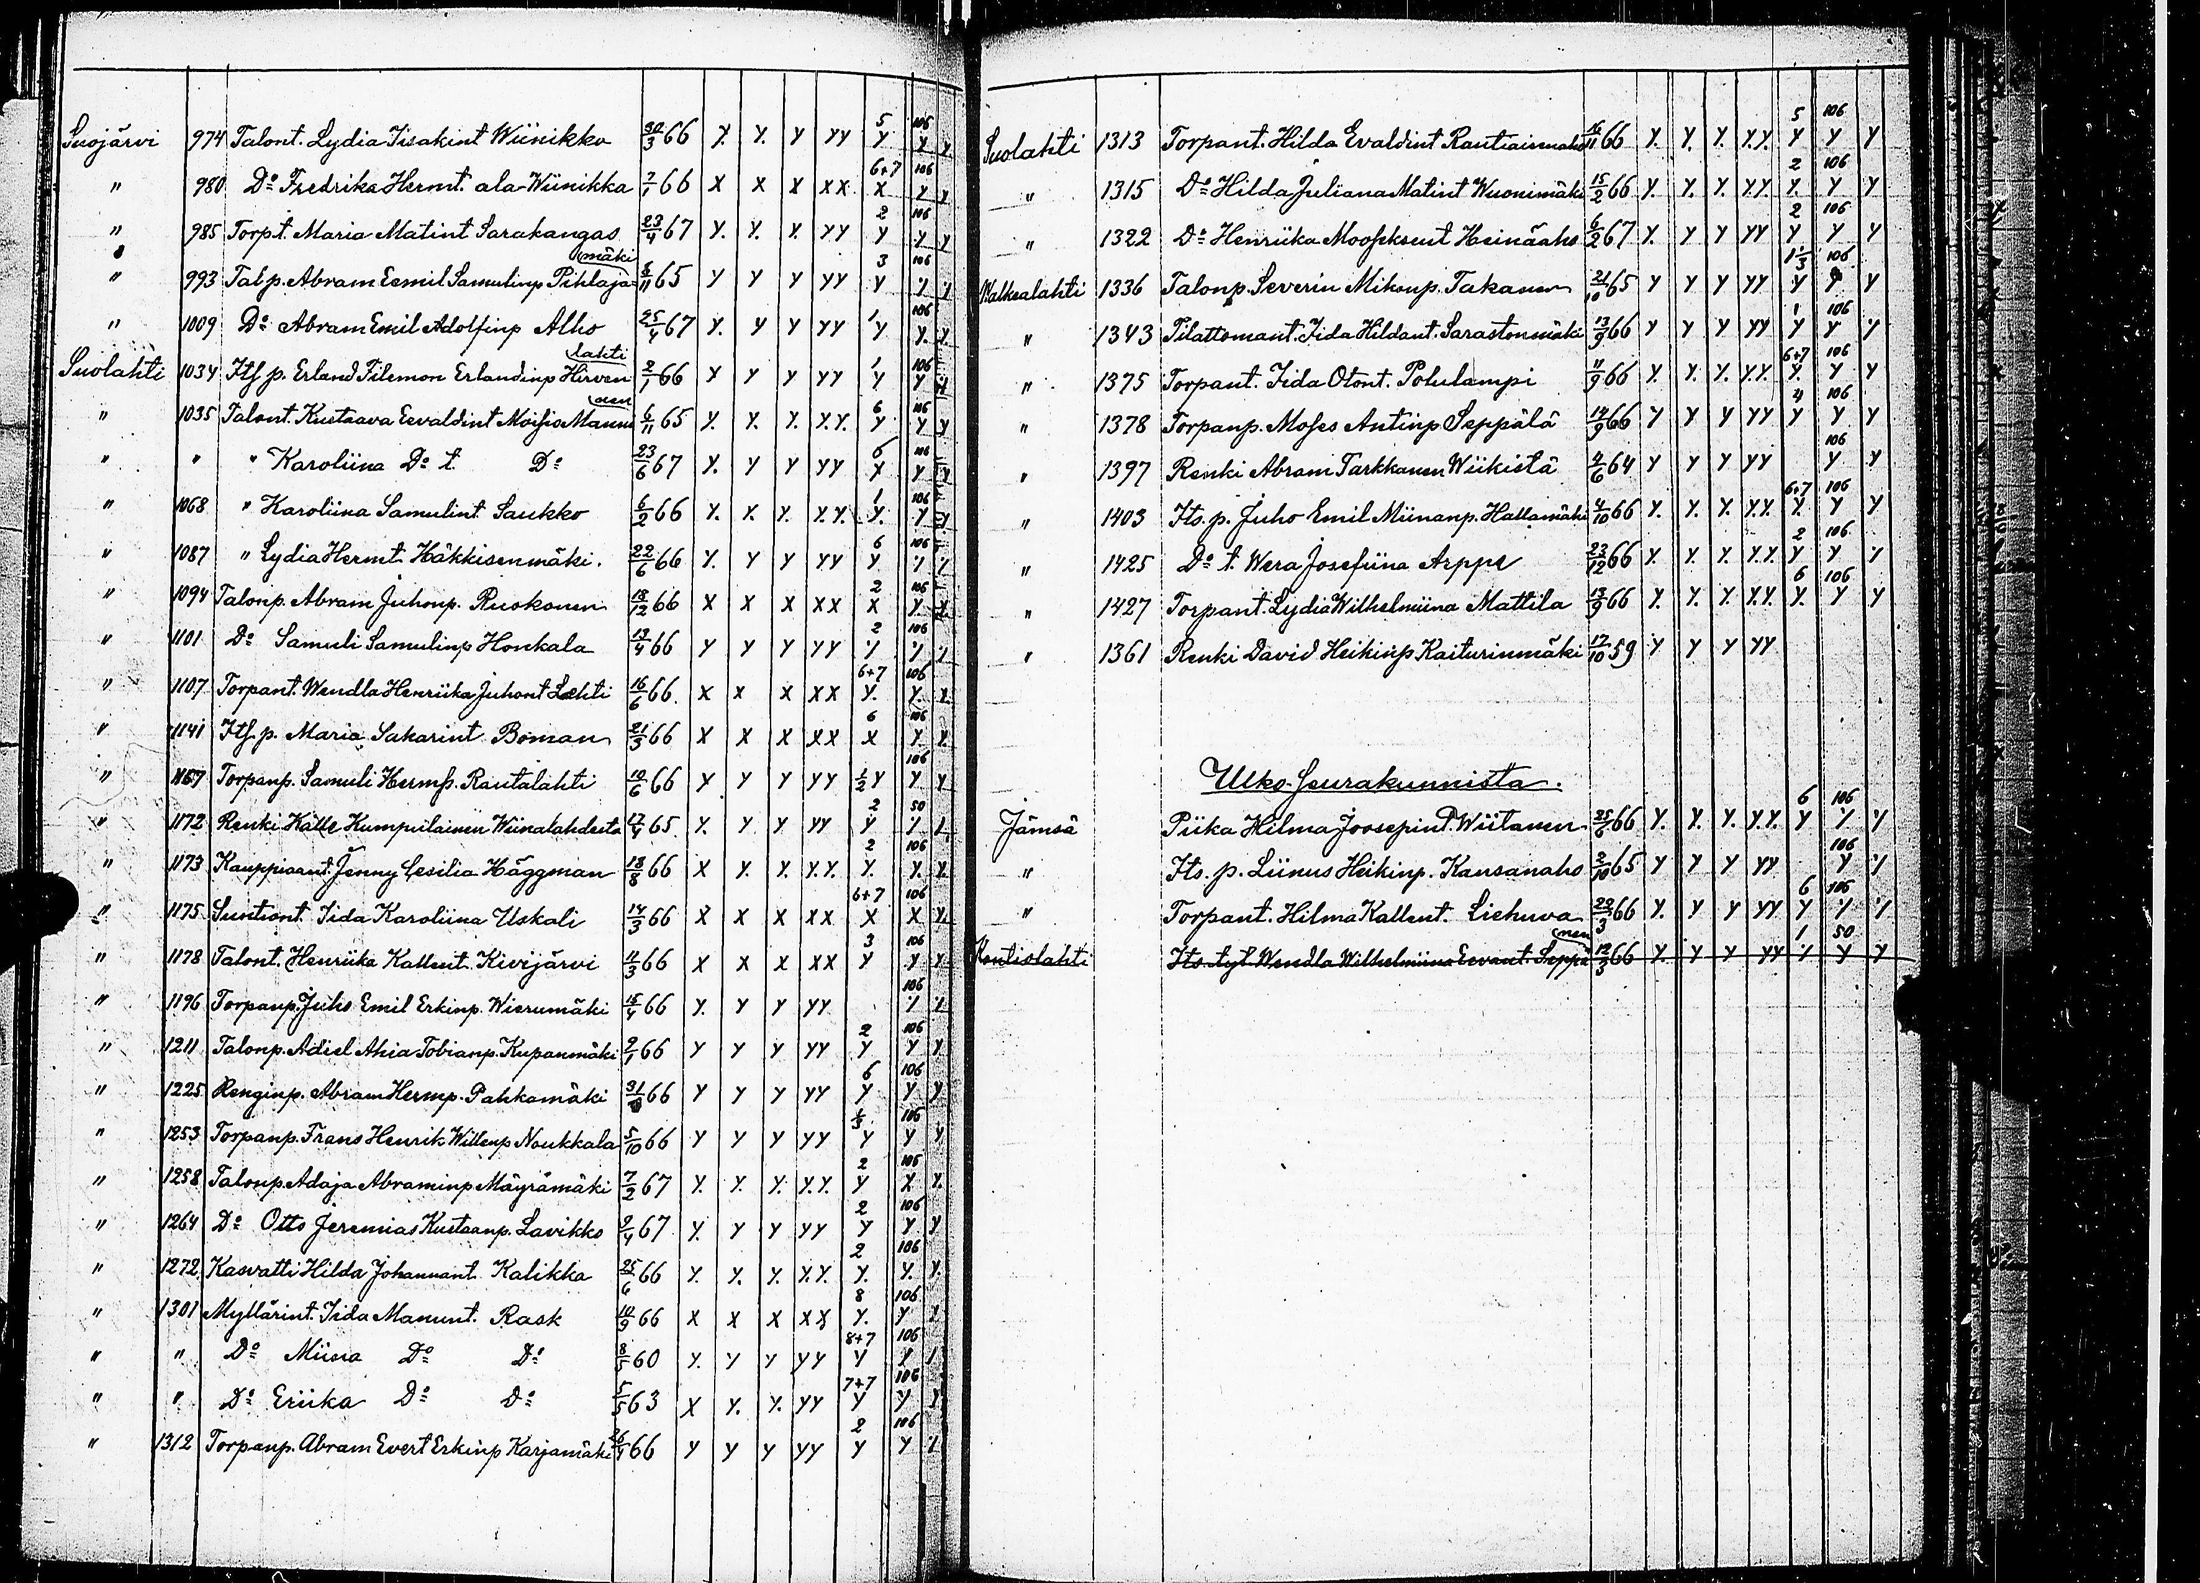 Suojärvi 974 Talont. Lydia Iisakint Wiinikka 30/3 66 Y. Y. Y YY 5 Y 106 Y Y
" 980 Do Fredrika Hermt. ala-Wiinikka 7/1 66 X X X XX 6+7 X 106 Y Y
" 985 Torpt. Maria Matint Sarakangas 23/4 67 Y. Y. Y. YY 2 Y 106 Y Y
" 993 Talp. Abram Eemil Samulinp Pihlajamäki 8/11 65 Y Y Y YY 3 Y 106 Y Y
" 1009 Do Abram Emil Adolfinp Alho 25/4 67 Y. Y Y YY 1 Y 106 Y. Y.
Suolahti 1034 Its. p. Erland Filemon Erlandinp Hirvenlahti 2/1 66 Y Y Y YY 1 Y 106 Y Y
" 1035 Talont. Kustaava Eevaldint Moisio Manninen 6/11 65 Y. Y. Y. Y.Y. 6 Y 106 Y Y
" " " Karoliina Do t. Do 23/6 67 Y. Y Y YY 6 Y 106 Y Y
" 1068 " Karoliina Samulint Saukko 6/2 66 Y. Y. Y. Y.Y. 1 Y. 106 Y Y
" 1087 " Lydia Hermt. Häkkisenmäki. 22/6 66 Y. Y Y YY 6 Y 106 Y Y
" 1094 Talonp. Abram Juhonp. Ruokonen 18/12 66 X X X XX 2 X 106 Y. Y.
" 1101 Do Samuli Samulinp Honkala 13/4 66 Y Y Y YY 2 Y 106 Y Y
" 1107 Torpant. Wendla Henriika Juhont Lahti 16/6 66. X X X XX 6+7 Y. 106 Y. Y.
" 1141 Its. p. Maria Sakarint Boman 21/3 66 X X X XX 6 X 106 Y. Y.
" 1167 Torpanp. Samuli Hermp. Rautalahti 10/6 66 Y Y Y YY 1/2 Y 106 Y Y
" 1172 Renki Kalle Kumpulainen Wiinalahdesta 17/4 65. Y. Y Y YY 2 Y 50 Y Y
" 1173 Kauppiaant. Jenny Cesilia Häggman 18/8 66 X Y. Y. Y.Y. 2 Y. 106 Y. Y.
" 1175 Suntiont. Iida Karoliina Uskali 14/3 66 X X X XX 6+7 X 106 X Y.
" 1178 Talont. Henriika Kallent. Kivijärvi 11/3 66 X X X XX 3 Y 106 Y Y
" 1196 Torpanp. Juho Emil Erkinp. Wierumäki 15/4 66 Y. Y Y YY 106 Y Y
" 1211 Talonp. Adiel Ahia Tobianp. Kupanmäki 2/1 66 Y Y Y YY 2 Y 106 Y Y
" 1225 Renginp. Abram Hermp. Pahkamäki 31/8 66 Y Y Y YY 6 Y 106 Y Y
" 1253 Torpanp. Frans Henrik Willenp Noukkala 5/10 66 Y Y Y YY 1/3 Y 106 Y Y
" 1258 Talonp. Adaja Abraminp Mäyrämäki 7/2 67 Y. Y. Y. Y.Y. 2 Y 106 X Y.
" 1264 Do Otto Jeremias Kustaanp. Lavikko 9/4 67 Y. Y Y YY 2 Y 106 Y Y
" 1272 Kasvatti Hilda Johannant. Kalikka 25/6 66 Y. Y. Y. Y.Y. 2 Y. 106 Y. Y.
" 1301 Myllärint. Iida Manunt. Rask 10/9 66 X X X XX 8 Y. 106 Y Y
" " Do Miina Do Do 8/5 60 Y. Y Y YY 8+7 Y 106 Y Y
" " Do Eriika Do Do 5/5 63 X Y. Y. YY 7+7 Y 106 Y Y
" 1312 Torpanp. Abram Evert Erkinp Karjamäki 26/4 66 Y Y Y YY 2 Y 106 Y Y
Suolahti 1313 Torpant. Hilda Evaldint Rautiainmaho 16/11 66 Y. Y. Y. Y.Y. 5 Y 106 Y Y
" 1315 Do Hilda Juliana Matint Wuonimäki 15/2 66 Y. Y. Y. Y.Y. 2 Y. 106 Y Y
" 1322 Do Henriika Mooseksent Heinäaho 6/2 67 Y. Y Y YY 2 Y 106 Y Y
Walkealahti 1336 Talonp. Severin Mikonp. Takanen 21/10 65 Y Y Y YY 1 1/3 Y 106 Y Y
" 1343 Tilattomant. Iida Hildant. Sarastonmäki 13/9 66 Y Y Y YY 1 Y 106 Y Y
" 1375 Torpant. Iida Otont. Polulampi 11/9 66 Y. Y. Y. Y.Y. 6+7 Y. 106 Y Y
" 1378 Torpanp. Moses Antinp Seppälä 14/9 66 Y Y Y YY 4 Y 106 Y Y
" 1397 Renki Abram Tarkkanen Wiikistä 4/6 64 Y Y Y YY 106 Y Y
" 1403 Its. p. Juho Emil Miinanp. Hallamäki 4/10 66 Y. Y. Y. Y.Y. 6+7 Y. 106 Y Y
" 1425 Do t. Wera Josefiina Arppe 23/12 66 Y. Y. Y. Y.Y. 2 Y 106 Y Y
" 1427 Torpant. Lydia Wilhelmiina Mattila 13/9 66 Y. Y. Y. Y.Y. 6 Y. 106 Y Y
" 1361 Renki David Heikinp Kaiturinmäki 17/10 59 Y Y Y YY
Ulko-seurakunnista.
Jämsä Piika Hilma Joosepint. Wiitanen 25/6 66 Y. Y. Y. Y.Y. 6 Y 106 Y Y
" Its. p. Liinus Heikinp. Kansanaho 2/10 65 Y Y Y YY 106 Y Y
" Torpant. Hilma Kallent. Liehuva 22/3 66 Y. Y Y YY 6 Y 106 Y Y
Kontiolahti Its. tyt Wendla Wilhelmiina Eevant. Seppänen 12/3 66 Y. Y Y YY 1 Y 50 Y Y